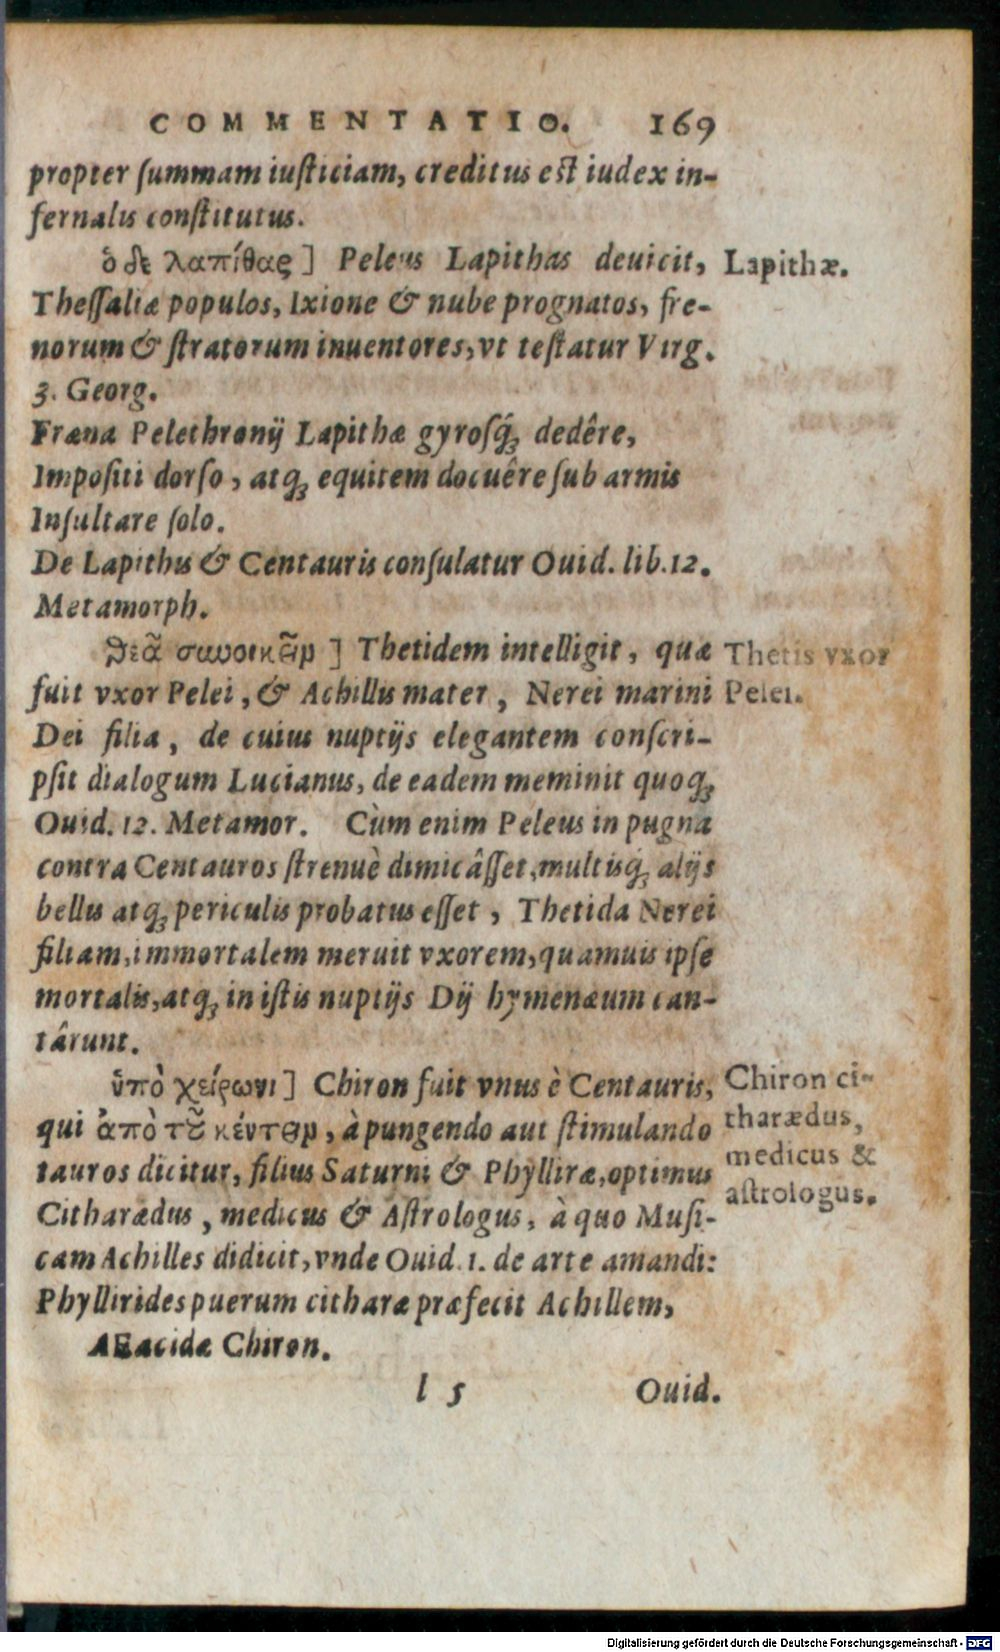 COMMENTATIO. 169
propter ſummam iuſticiam, creditus eſt iudex in-
fernalis conſtitutus.
ὁ δὲ λαπίθας] Peleus Lapithas deuicit, Lapithæ.
Theſſaliæ populos, Ixione & nube prognatos, fre-
norum & ſtratorum inuentores, vt teſtatur Virg.
3. Georg.
Fræna Pelethronij Lapithæ gyroſq́; dedêre,
Impoſiti dorſo, atq; equitem docuêre ſub armis
Inſultare ſolo.
De Lapithis & Centauris conſulatur Ouid. lib.12.
Metamorph.
θεᾶ συνοικῶν] Thetidem intelligit, quæ Thetis vxor
fuit vxor Pelei, & Achillis mater, Nerei marini Pelei.
Dei filia, de cuius nuptijs elegantem conſcri-
pſit dialogum Lucianus, de eadem meminit quoq;
Ouid. 12. Metamor. Cùm enim Peleus in pugna
contra Centauros ſtrenuè dimicâſſet, multisq́; alijs
bellis atq; periculis probatus eſſet, Thetida Nerei
filiam, immortalem meruit vxorem, quamuis ipſe
mortalis, atq; in iſtis nuptijs Dij hymenæum can-
târunt.
ὑπὸ χείρωνι] Chiron fuit vnus è Centauris, Chiron ci-
qui ἀπὸ τοῦ κέντων, à pungendo aut ſtimulando tharædus,
tauros dicitur, filius Saturni & Phylliræ, optimus medicus &
Citharædus, medicus & Aſtrologus, à quo Muſi- aſtrologus.
cam Achilles didicit, vnde Ouid. 1. de arte amandi:
Phyllirides puerum citharæ præfecit Achillem,
AEacidæ Chiron.
l 5 Ouid.
Digitalisierung gefördert durch die Deutsche Forschungsgemeinschaft - DFG